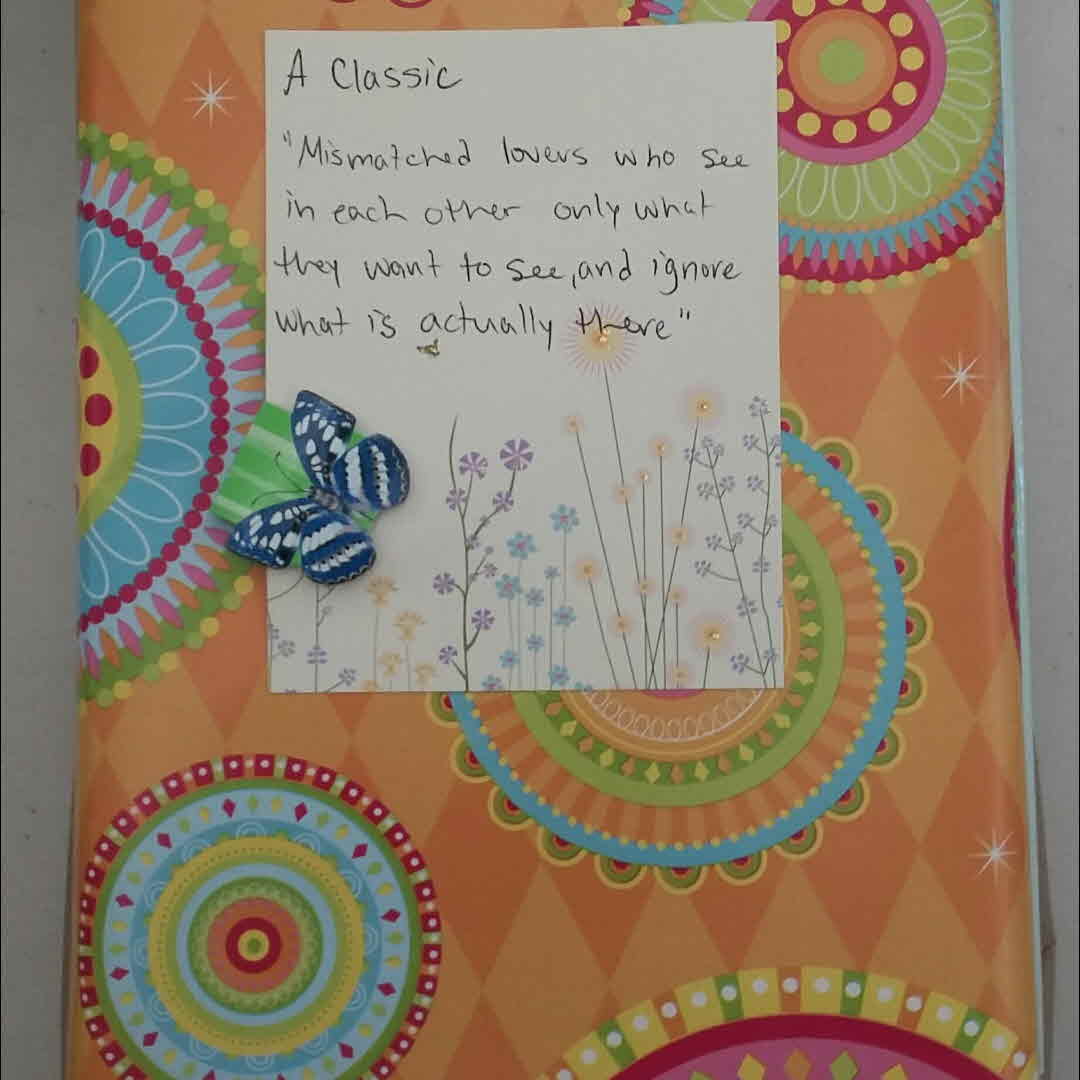 A Classic
"Mismatched lovers who see
in each other only what
they want to see, and ignore
what is actually there"